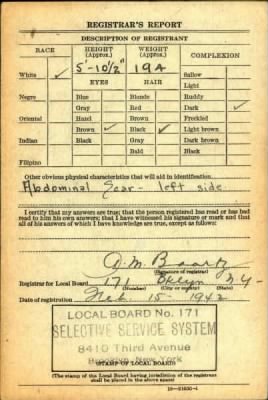 REGISTRAR'S REPORT
DESCRIPTION OF REGISTRANT
RACE HEIGHT (Approx.) WEIGHT (Approx.) COMPLEXION
White ✓ 5-10½" 194 Sallow
EYES HAIR Light
Negro Blue Blonde Ruddy
Gray Red Dark ✓
Oriental Hazel Brown Freckled
Brown ✓ Black ✓ Light brown
Indian Black Gray Dark brown
Bald Black
Filipino
Other obvious physical characteristics that will aid in identification
Abdominal Scar - left side
I certify that my answers are true; that the person registered has read or has had read to him his own answers; that I have witnessed his signature or mark and that all of his answers of which I have knowledge are true, except as follows:
(Signature of registrar)
Registrar for Local Board 171 Bklyn N.Y.
(Number) (City or county) (State)
Date of registration Feb 15 1942
LOCAL BOARD No. 171
SELECTIVE SERVICE SYSTEM
8410 Third Avenue
Brooklyn, New York
(STAMP OF LOCAL BOARD)
(The stamp of the Local Board having jurisdiction of the registrant shall be placed in the above space)